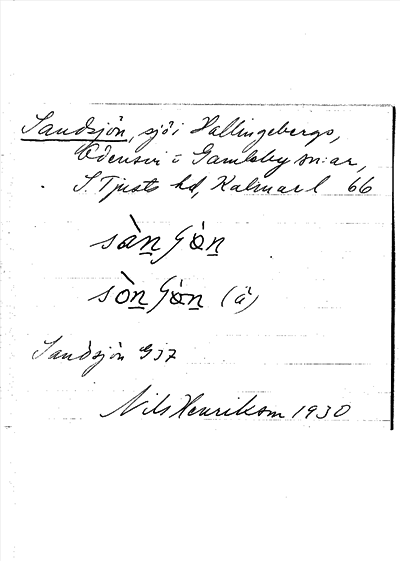 Sandsjön, sjö i Hallingebergs,
Odensvi o Gamleby sn:ar,
S. Tjusts hd, Kalmar l 66
(å)
Sandsjön G37
Nils Henrikson 1930